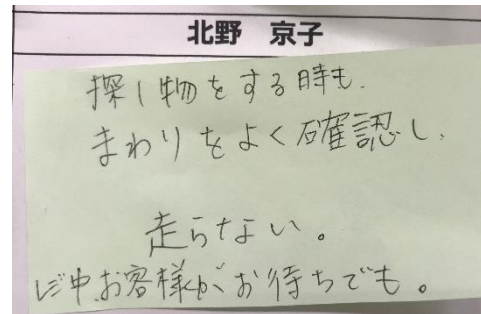 北野 京子
探し物をする時も、
まわりをよく確認し、
走らない。
レジ中、お客様が、お待ちでも。